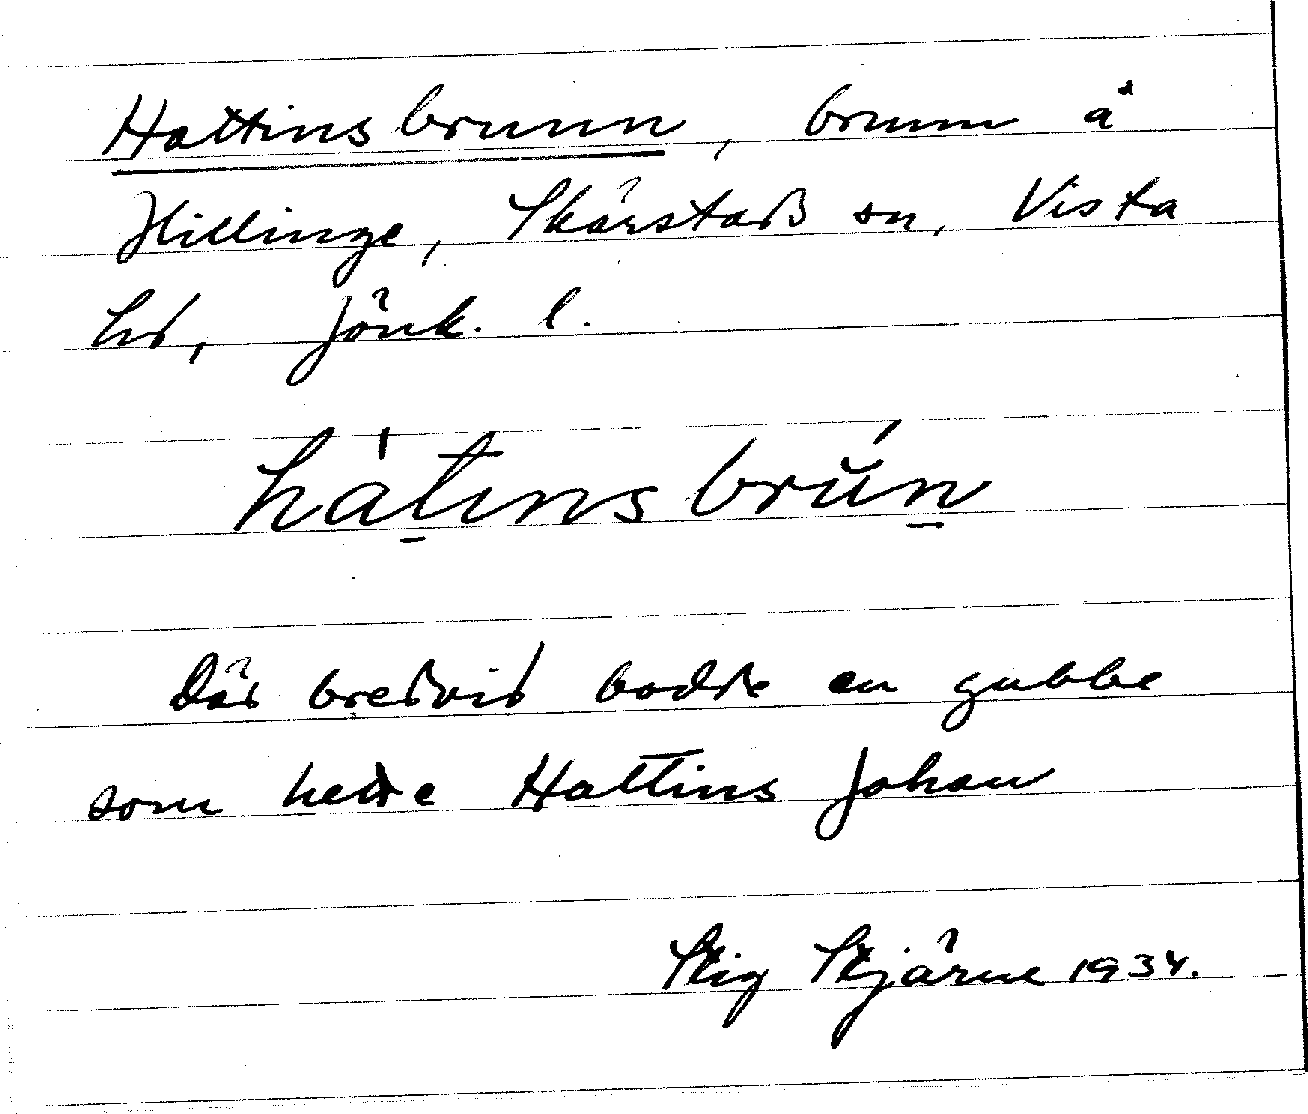 Hattinsbrunn, brunn å
Hillinge, Skärstads sn, Vista
hd, Jönk. l.
hàtinsbrún
Där bredvid bodde en gubbe
som hette Hattins Johan
Stig Stjärne 1934.